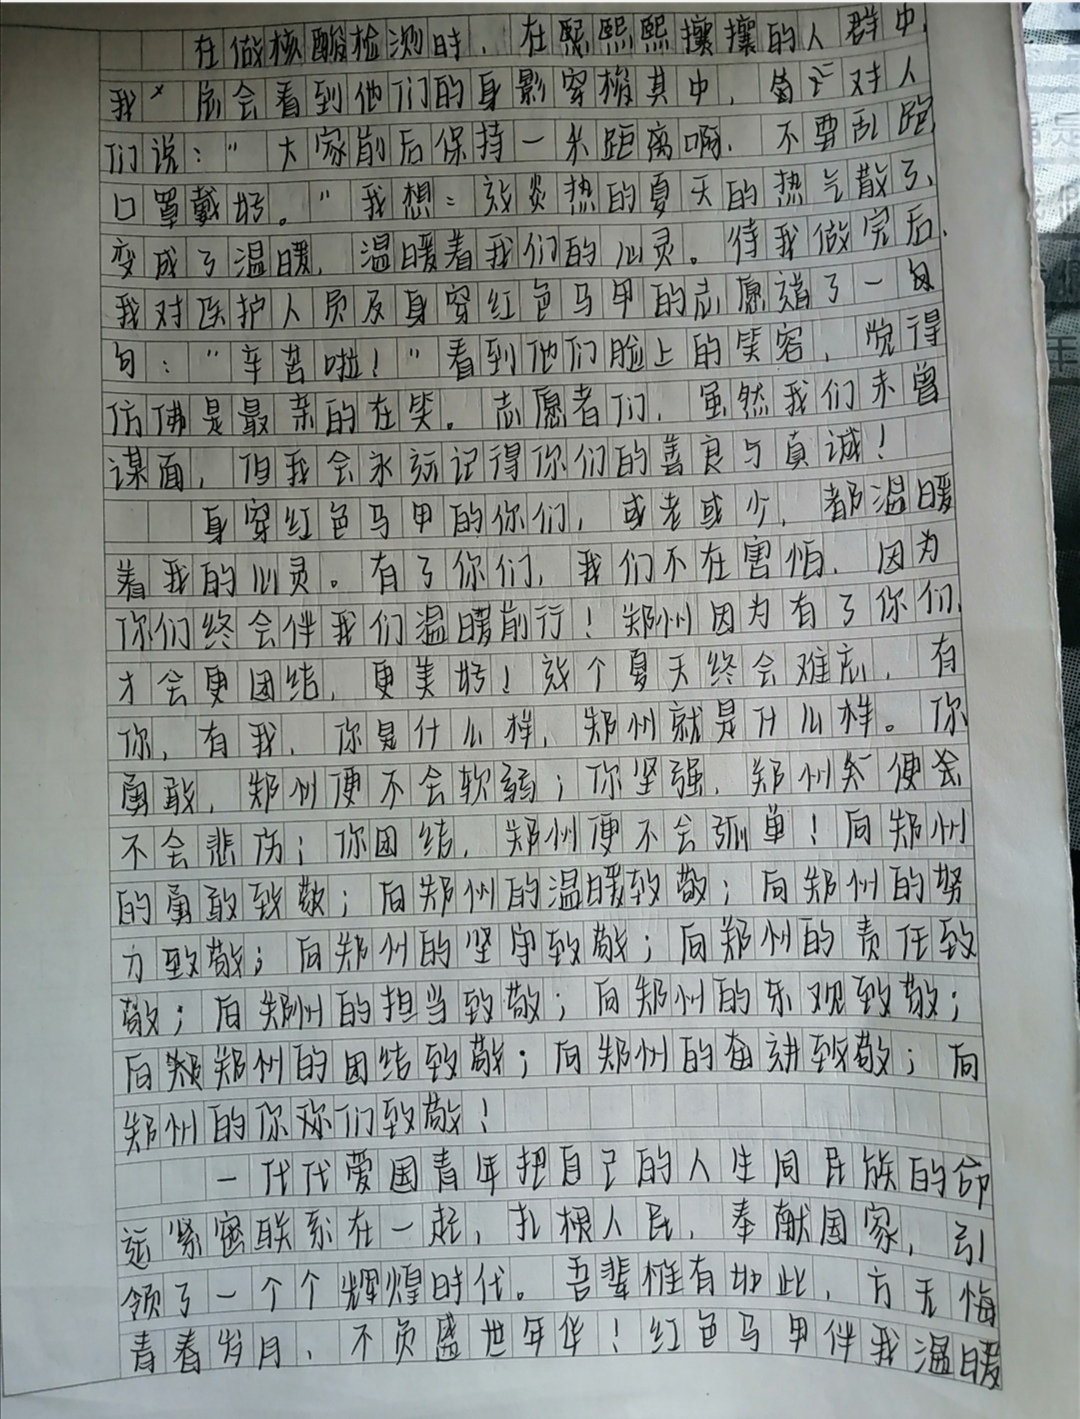 在做核酸检测时，在熙熙熙攘攘的人群中，
我总会看到他们的身影穿梭其中，对人
们说：“大家前后保持一米距离啊，不要乱跑
口罩戴好。”我想：这炎热的夏天的热气散了、
变成了温暖，温暖着我们的心灵。待我做完后，
我对医护人员及身穿红色马甲的志愿道了一句
句：“辛苦啦！”看到他们脸上的笑容，觉得
仿佛是最亲的在笑。志愿者们，虽然我们未曾
谋面，但我会永远记得你们的善良与真诚！
身穿红色马甲的你们，或老或少，都温暖
着我的心灵。有了你们，我们不在害怕，因为
你们终会伴我们温暖前行！郑州因为有了你们，
才会更团结，更美好！这个夏天终会难忘，有
你，有我，你是什么样，郑州就是什么样。你
勇敢，郑州便不会软弱；你坚强，郑州便会
不会悲伤；你团结，郑州便不会孤单！向郑州
的勇敢致敬；向郑州的温暖致敬；向郑州的努
力致敬；向郑州的坚守致敬；向郑州的责任致
敬；向郑州的担当致敬；向郑州的乐观致敬；
向郑郑州的团结致敬；向郑州的奋进致敬；向
郑州的你你们致敬！
一代代爱国青年把自己的人生同民族的命
运紧密联系在一起，扎根人民，奉献国家，引
领了一个个辉煌时代。吾辈惟有如此，方无悔
青春岁月，不负盛世年华！红色马甲伴我温暖